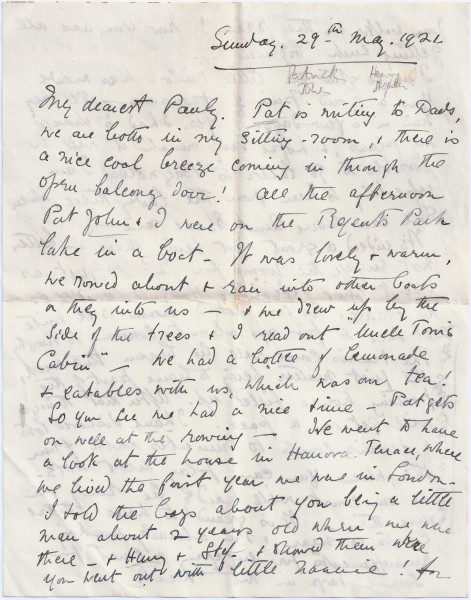 Sunday. 29th May. 1921
Patrick
Tow
Henry
My dearest Pauly. Pat is writing to Dads,
we are both in my sitting-room, & there is
a nice cool breeze coming in through the
open balcony door! All the afternoon
Pat John & I were on the Regents Park
lake in a boat - It was lovely & warm,
we rowed about & ran into other boats
or they into us - & we drew up by the
side of the trees & I read out "Uncle Tom's
Cabin" - We had a bottle of lemonade
& eatables with us, which was our tea!
So you see we had a nice time - Pat gets
on well at the rowing - We went to have
a look at the house in Hanover Terrace, where
we lived the first year we were in London -
I told the boys about you being a little
man about 2 years old when we were
there - & Henry & & showed them where
you went out with little Nannie! for